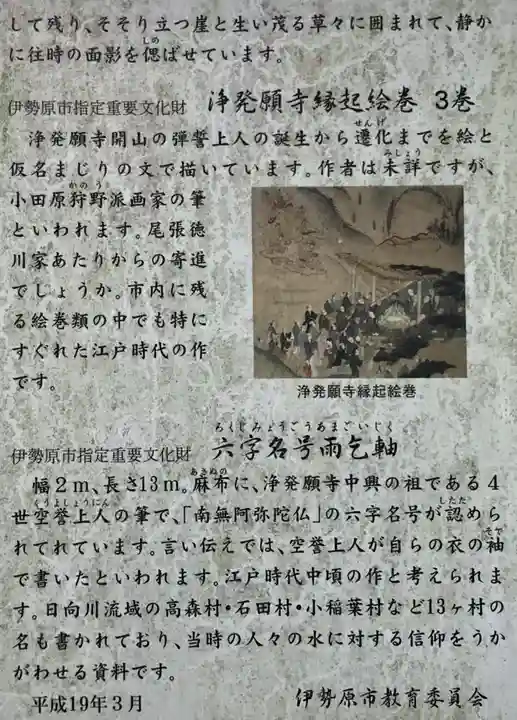 して残り、そそり立つ崖と生い茂る草々に囲まれて、静か
に往時の面影を偲ばせています。
伊勢原市指定重要文化財 浄発願寺縁起絵巻 3巻
浄発願寺開山の弾誓上人の誕生から遷化までを絵と
仮名まじりの文で描いています。作者は未詳ですが、
小田原狩野派画家の筆
といわれます。尾張徳
川家あたりからの寄進
でしょうか。市内に残
る絵巻類の中でも特に
すぐれた江戸時代の作
です。
浄発願寺縁起絵巻
伊勢原市指定重要文化財 六字名号雨乞軸
幅2m、長さ13m。麻布に、浄発願寺中興の祖である4
世空誉上人の筆で、「南無阿弥陀仏」の六字名号が認めら
れてれています。言い伝えでは、空誉上人が自らの衣の袖
で書いたといわれます。江戸時代中頃の作と考えられま
す。日向川流域の高森村・石田村・小稲葉村など13ヶ村の
名も書かれており、当時の人々の水に対する信仰をうか
がわせる資料です。
平成19年3月 伊勢原市教育委員会